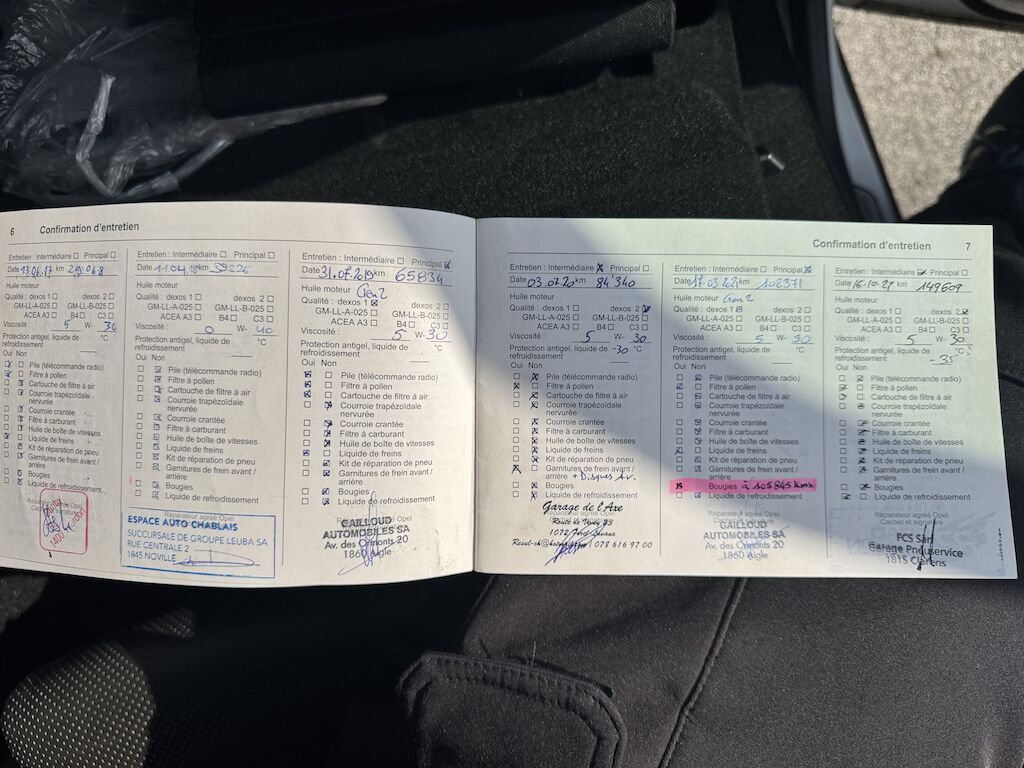 6 Confirmation d'entretien
Entretien : Intermédiaire Principal
Date 13.06.17 km
Huile moteur
Qualité : dexos 1 dexos 2
GM-LL-A-025 GM-LL-B-025
ACEA A3 B4 C3
Viscosité : 5 W- 30
Protection antigel, liquide de refroidissement °C
Oui Non
Pile (télécommande radio)
Filtre à pollen
Cartouche de filtre à air
Courroie trapézoïdale
nervurée
Courroie crantée
Filtre à carburant
Huile de boîte de vitesses
Liquide de freins
Kit de réparation de pneu
Garnitures de frein avant /
arrière
Bougies
Liquide de refroidissement
Réparateur agréé Opel
Entretien : Intermédiaire Principal
Date 11.04.18 km 39226
Huile moteur
Qualité : dexos 1 dexos 2
GM-LL-A-025 GM-LL-B-025
ACEA A3 B4 C3
Viscosité : 0 W- 40
Protection antigel, liquide de
refroidissement °C
Oui Non
Pile (télécommande radio)
Filtre à pollen
Cartouche de filtre à air
Courroie trapézoïdale
nervurée
Courroie crantée
Filtre à carburant
Huile de boîte de vitesses
Liquide de freins
Kit de réparation de pneu
Garnitures de frein avant /
arrière
Bougies
Liquide de refroidissement
Réparateur agréé Opel
ESPACE AUTO CHABLAIS
SUCCURSALE DE GROUPE LEUBA SA
RUE CENTRALE 2
1845 NOVILLE
Entretien : Intermédiaire Principal
Date 31.07.2019 km 65834
Huile moteur Gen 2
Qualité : dexos 1 dexos 2
GM-LL-A-025 GM-LL-B-025
ACEA A3 B4 C3
Viscosité : 5 W- 30
Protection antigel, liquide de
refroidissement °C
Oui Non
Pile (télécommande radio)
Filtre à pollen
Cartouche de filtre à air
Courroie trapézoïdale
nervurée
Courroie crantée
Filtre à carburant
Huile de boîte de vitesses
Liquide de freins
Kit de réparation de pneu
Garnitures de frein avant /
arrière
Bougies
Liquide de refroidissement
Réparateur agréé Opel
GAILLOUD
AUTOMOBILES SA
Av. des Ormonts 20
1860 Aigle
Confirmation d'entretien 7
Entretien : Intermédiaire Principal
Date 03.07.20 km 84'340
Huile moteur
Qualité : dexos 1 dexos 2
GM-LL-A-025 GM-LL-B-025
ACEA A3 B4 C3
Viscosité : 5 W- 30
Protection antigel, liquide de -30 °C
refroidissement
Oui Non
Pile (télécommande radio)
Filtre à pollen
Cartouche de filtre à air
Courroie trapézoïdale
nervurée
Courroie crantée
Filtre à carburant
Huile de boîte de vitesses
Liquide de freins
Kit de réparation de pneu
Garnitures de frein avant /
arrière + Disques Av.
Bougies
Liquide de refroidissement
Garage de l'Axe
Route de Vevey
1072
078 616 97 00
Entretien : Intermédiaire Principal
Date 17.03.2021 km 102371
Huile moteur Gen 2
Qualité : dexos 1 dexos 2
GM-LL-A-025 GM-LL-B-025
ACEA A3 B4 C3
Viscosité : 5 W- 30
Protection antigel, liquide de
refroidissement °C
Oui Non
Pile (télécommande radio)
Filtre à pollen
Cartouche de filtre à air
Courroie trapézoïdale
nervurée
Courroie crantée
Filtre à carburant
Huile de boîte de vitesses
Liquide de freins
Kit de réparation de pneu
Garnitures de frein avant /
arrière
Bougies à 105845 kms
Liquide de refroidissement
Réparateur agréé Opel
Cachet et signature
GAILLOUD
AUTOMOBILES SA
Av. des Ormonts 20
1860 Aigle
Entretien : Intermédiaire Principal
Date 16.10.21 km
Huile moteur
Qualité : dexos 1 dexos 2
GM-LL-A-025 GM-LL-B-025
ACEA A3 B4 C3
Viscosité : 5 W- 30
Protection antigel, liquide de °C
refroidissement -35
Oui Non
Pile (télécommande radio)
Filtre à pollen
Cartouche de filtre à air
Courroie trapézoïdale
nervurée
Courroie crantée
Filtre à carburant
Huile de boîte de vitesses
Liquide de freins
Kit de réparation de pneu
Garnitures de frein avant /
arrière
Bougies
Liquide de refroidissement
Réparateur agréé Opel
Cachet et signature
PCS Sàrl
Garage Pneuservice
1815 Clarens